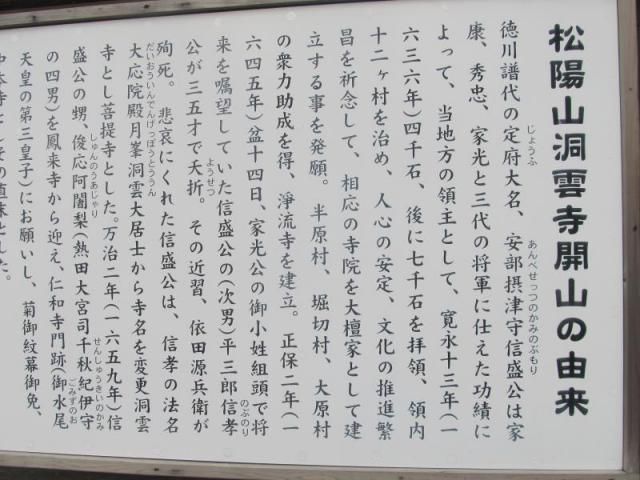 松陽山洞雲寺開山の由来
徳川譜代の定府大名、安部摂津守信盛公は家
じょうふ
あんべせっつのかみのぶもり
康、秀忠、家光と三代の将軍に仕えた功績に
よって、当地方の領主として、寛永十三年(一
六三六年)四千石、後に七千石を拝領、領内
十二ヶ村を治め、人心の安定、文化の推進繁
昌を祈念して、相応の寺院を大檀家として建
立する事を発願。半原村、堀切村、大原村
の衆力助成を得、淨流寺を建立。正保二年(一
六四五年)盆十四日、家光公の御小姓組頭で将
来を嘱望していた信盛公の(次男)平三郎信孝
のぶのり
公が三五才で夭折。その近習、依田源兵衛が
ようせつ
殉死。悲哀にくれた信盛公は、信孝の法名
大応院殿月峯洞雲大居士から寺名を変更洞雲
だいおういんでんげっぽうとううん
寺とし菩提寺とした。万治二年(一六五九年)信
盛公の甥、俊応阿闍梨(熱田大宮司千秋紀伊守
しゅんのうあじゃり
せんしゅうきいのかみ
の四男)を鳳来寺から迎え、仁和寺門跡(御水尾
ごみずのお
天皇の第三皇子)にお願いし、菊御紋幕御免、